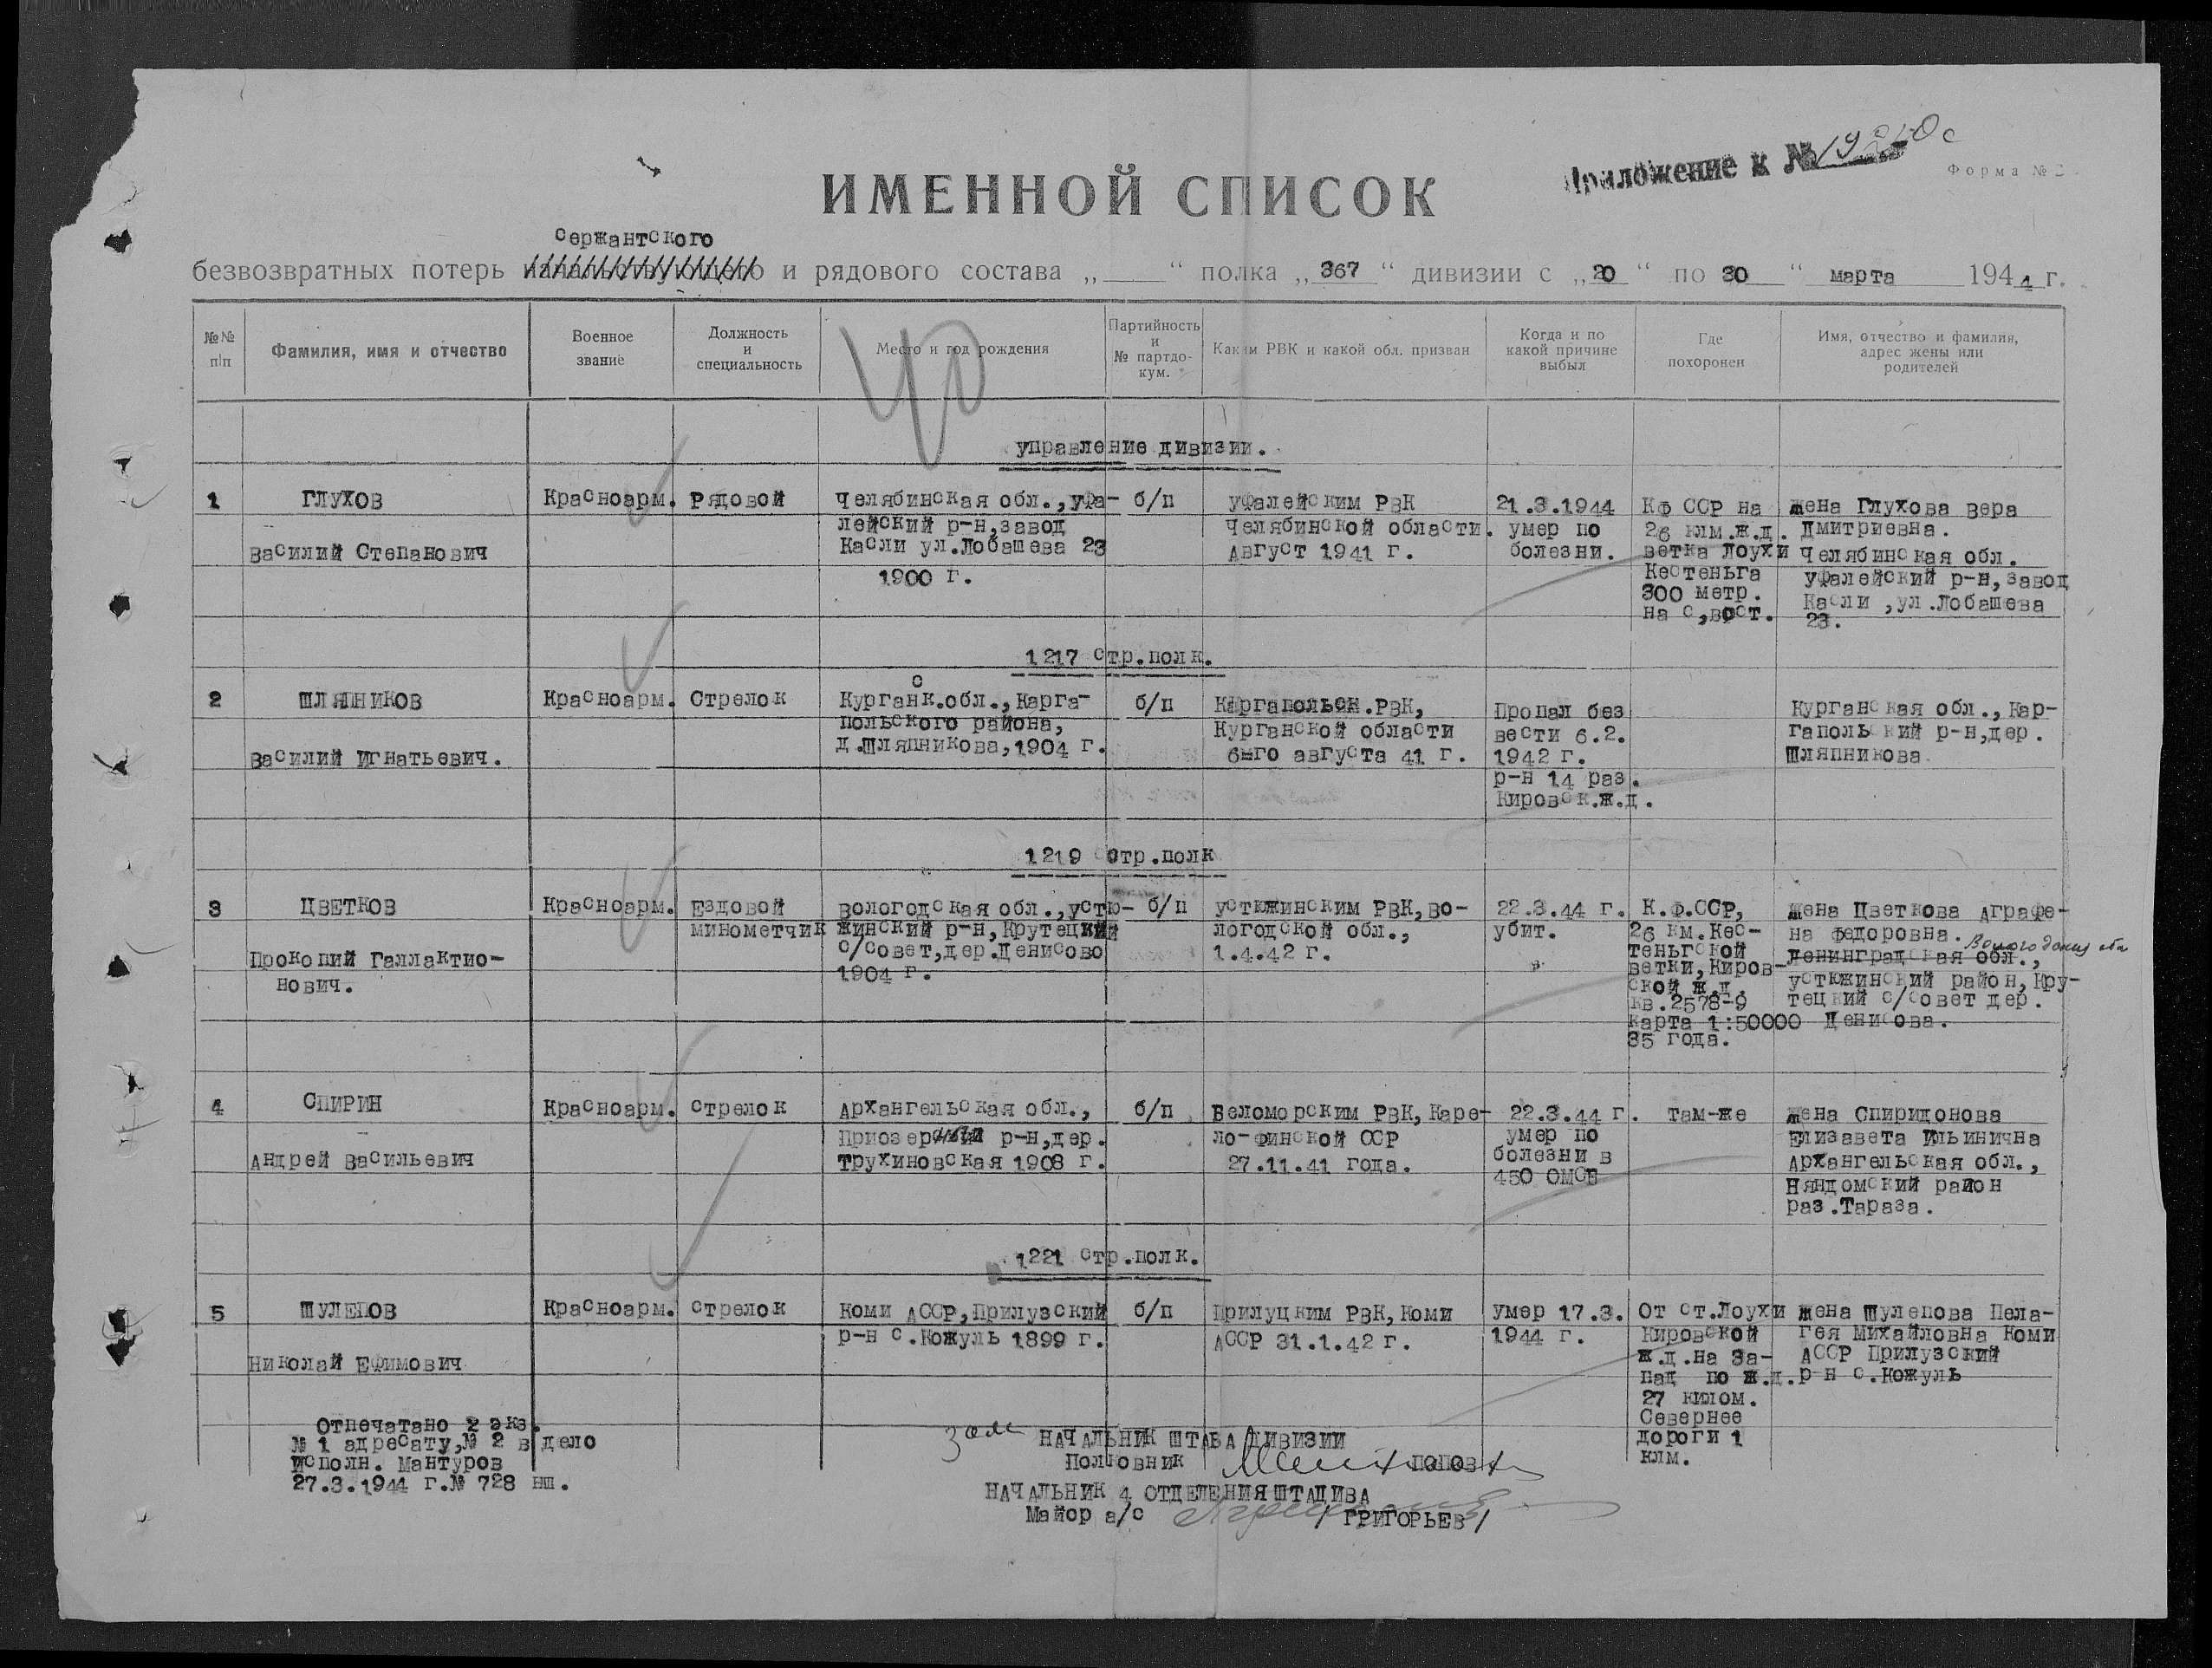 Приложение к №
Форма № 2
ИМЕННОЙ СПИСОК
сержантского
безвозвратных потерь начальствующего и рядового состава „ “ полка „ 367 “ дивизии с „ 20 “ по 30 “ марта 1944 г.
№№ п/п
Фамилия, имя и отчество
Военное звание
Должность и специальность
Место и год рождения
Партийность и № партдокум.
Каким РВК и какой обл. призван
Когда и по какой причине выбыл
Где похоронен
Имя, отчество и фамилия, адрес жены или родителей
40
управление дивизии.
1
ГЛУХОВ
Василий Степанович
Красноарм.
Рядовой
Челябинская обл.,уфа-
лейский р-н,завод
Касли ул.Лобашева 23
1900 г.
б/п
уфалейским РВК
Челябинской области.
Август 1941 г.
21.3.1944
умер по
болезни.
КФ ССР на
26 клм.ж.д.
ветка Лоухи
Кестеньга
300 метр.
на с,вост.
жена Глухова Вера
Дмитриевна.
Челябинская обл.
уфалейский р-н,завод
Касли ,ул.Лобашева
23.
1217 стр.полк.
2
ШЛЯПНИКОВ
Василий Игнатьевич.
Красноарм.
Стрелок
с
Курганк.обл.,Карга-
польского района,
д.Шляпникова,1904 г.
б/п
Каргапольск.РВК,
Курганской области
6-го августа 41 г.
Пропал без
вести 6.2.
1942 г.
р-н 14 раз.
Кировск.ж.д.
Курганская обл.,Кар-
гапольский р-н,дер.
Шляпникова
1219 стр.полк
3
ЦВЕТКОВ
Прокопий Галлактио-
нович.
Красноарм.
Ездовой
минометчик
Вологодская обл.,устю-
жинский р-н,Крутецкий
с/совет,дер.Денисово
1904 г.
б/п
устюжинским РВК,Во-
логодской обл.,
1.4.42 г.
22.3.44 г.
убит.
К.Ф.ССР,
26 км.Кес-
теньгской
ветки,Киров-
ской ж.д.
кв.2578-9
карта 1:50000
35 года.
жена Цветкова Аграфе-
на Федоровна.
Вологодская обл
Ленинградская обл.,
устюжинский район,Кру-
тецкий с/совет дер.
Денисова.
4
СПИРИН
Андрей Васильевич
Красноарм.
стрелок
Архангельская обл.,
Приозерный р-н,дер.
Трухиновская 1908 г.
б/п
Беломорским РВК,Каре-
ло-финской ССР
27.11.41 года.
22.3.44 г.
умер по
болезни в
450 ОМСБ
там-же
жена Спиридонова
Елизавета Ильинична
Архангельская обл.,
Няндомский район
раз.Тараза.
1221 стр.полк.
5
ШУЛЕПОВ
Николай Ефимович
Красноарм.
стрелок
Коми АССР,Прилузский
р-н с.Кожуль 1899 г.
б/п
Прилуцким РВК,Коми
АССР 31.1.42 г.
умер 17.3.
1944 г.
От ст.Лоухи
Кировской
ж.д.на За-
пад по ж.д.
27 килом.
Севернее
дороги 1
клм.
жена Шулепова Пела-
гея Михайловна Коми
АССР Прилузский
р-н с.Кожуль
Отпечатано 2 экз.
№ 1 адресату,№ 2 в дело
исполн. Мантуров
27.3.1944 г.№ 728 нш.
Зам
НАЧАЛЬНИК ШТАБА ДИВИЗИИ
Полковник ПОПОВ
НАЧАЛЬНИК 4 ОТДЕЛЕНИЯ ШТАДИВА
Майор а/с / ГРИГОРЬЕВ/